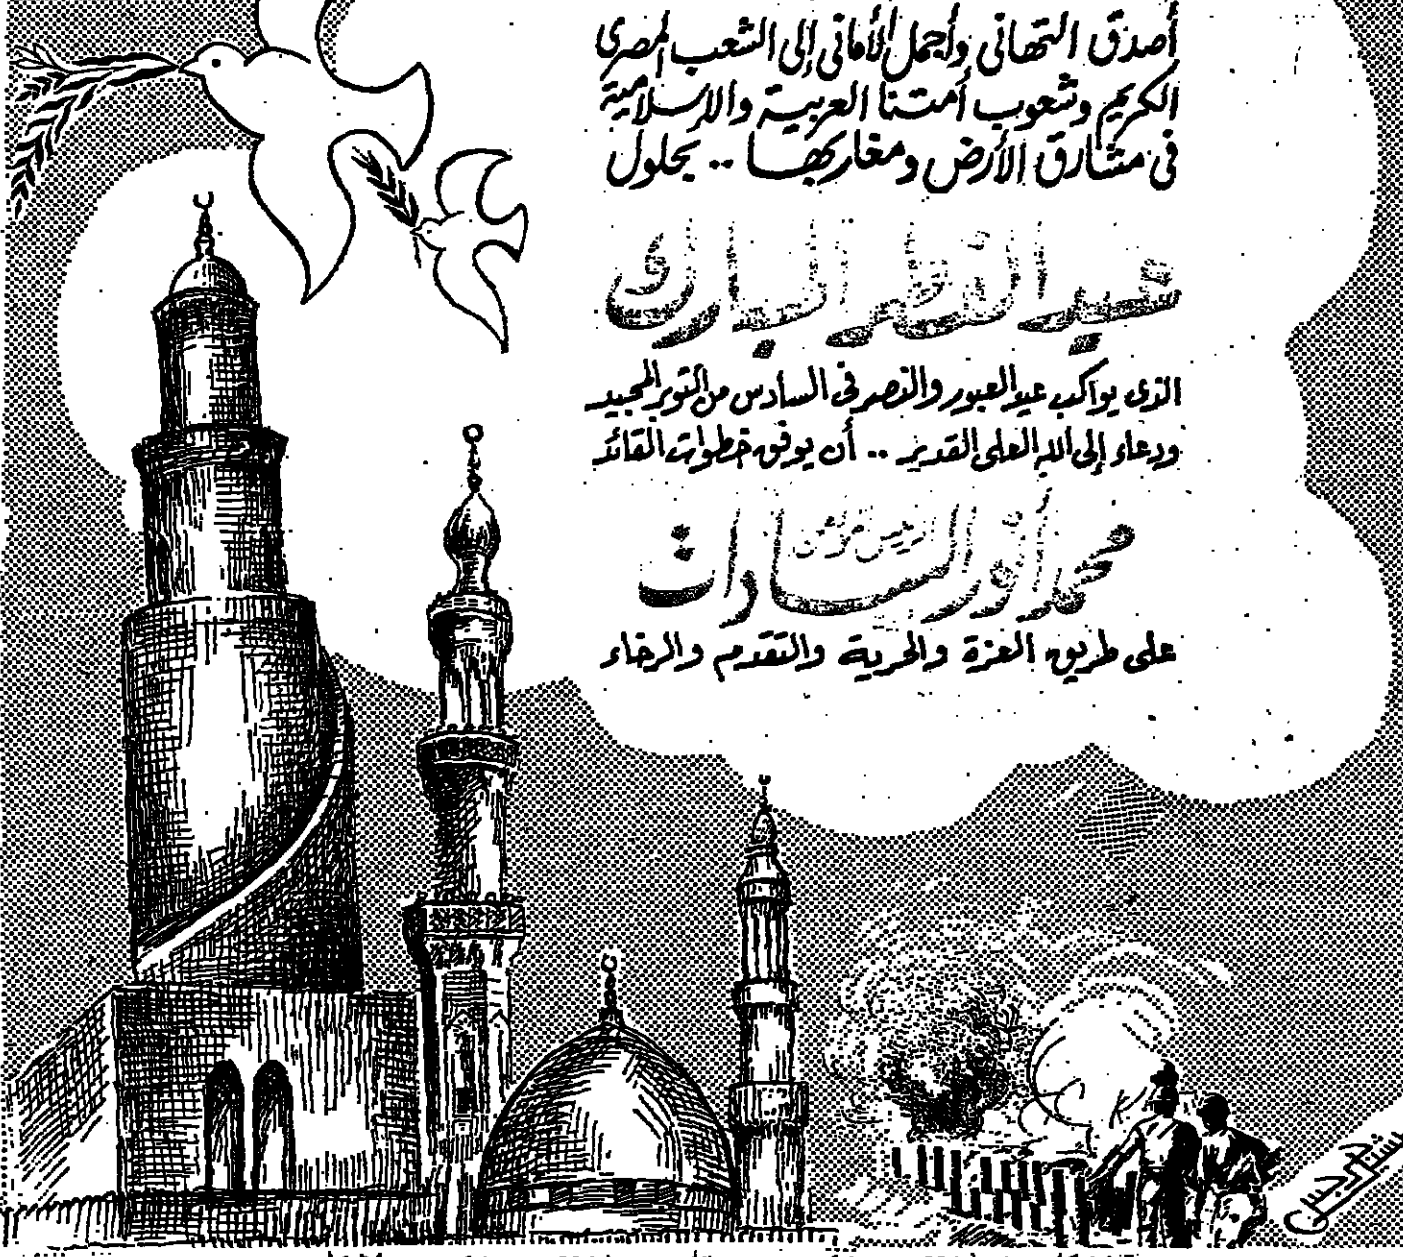 أصدق التهانى وأجمل الأمانى إلى الشعب المصرى
الكريم وشعوب أمتنا العربية والإسلامية
فى مشارق الأرض ومغاربها .. بحلول
عيد الفطر المبارك
الذى يواكب عيد العبور والنصر فى السادس من أكتوبر المجيد
ودعاء إلى الله العلى القدير .. أن يوفق خطوات القائد
محمد أنور السادات
على طريق العزة والحرية والتقدم والرخاء